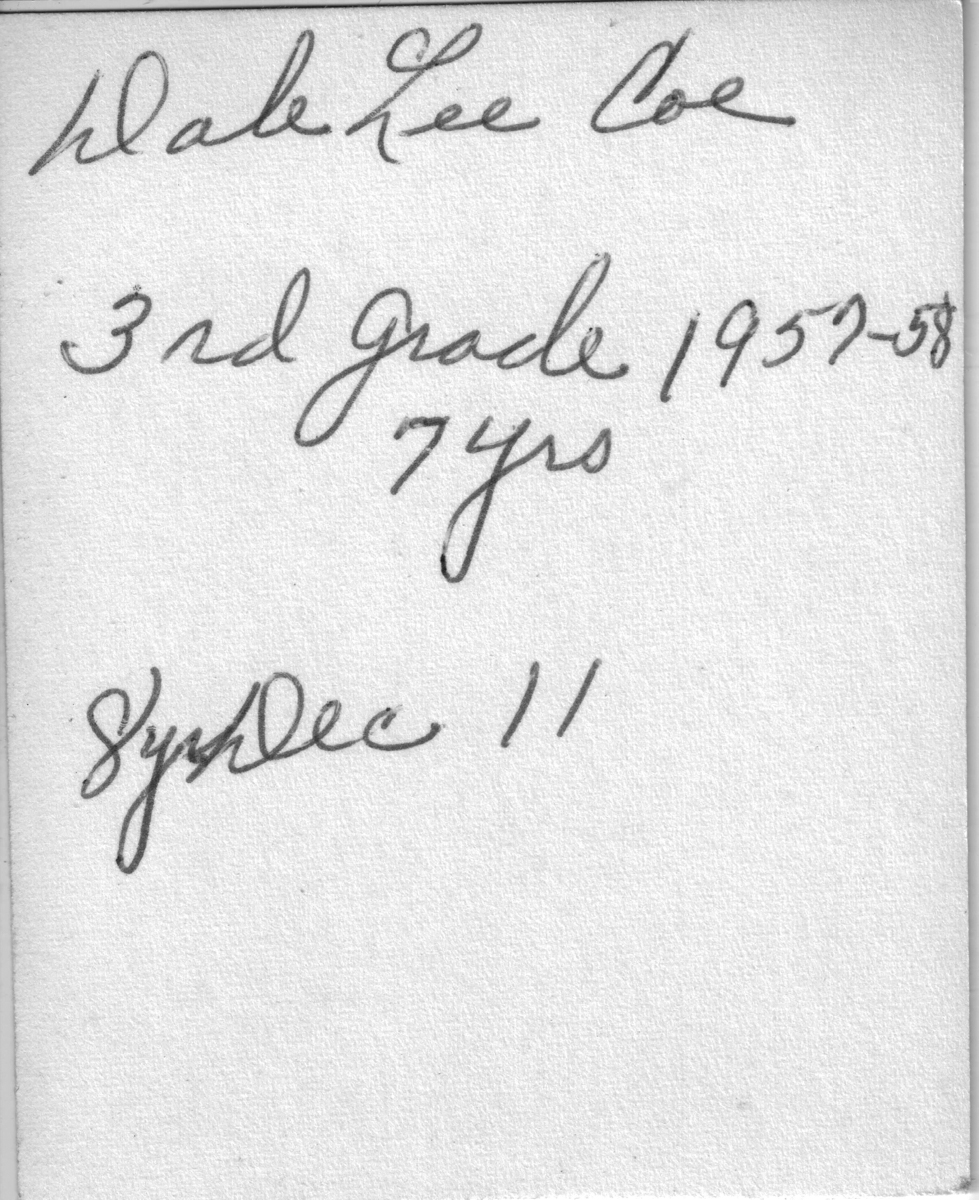 Dale Lee Coe
3rd grade 1957-58
7 yrs
8 yrs Dec 11